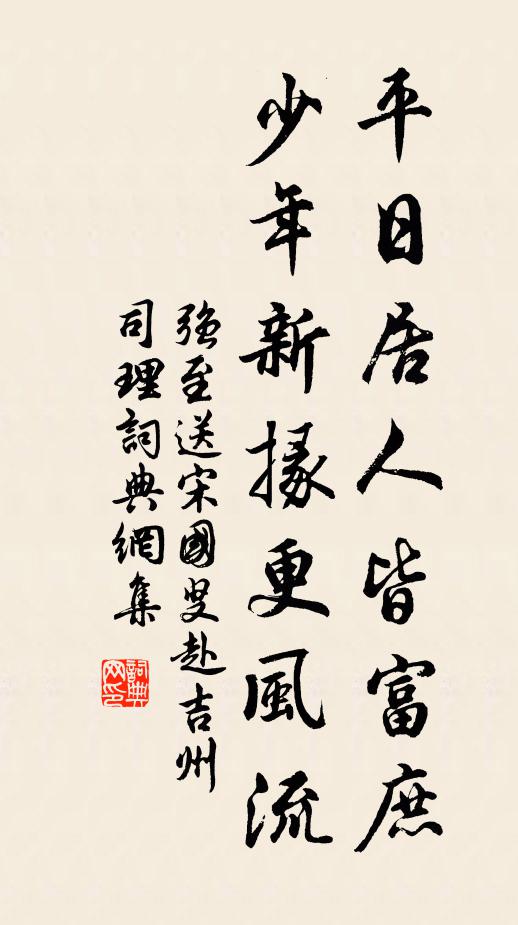 平日居人皆富庶
少年新掾更風流
強至送宋國叟赴吉州
司理詞典網集
詞典網印